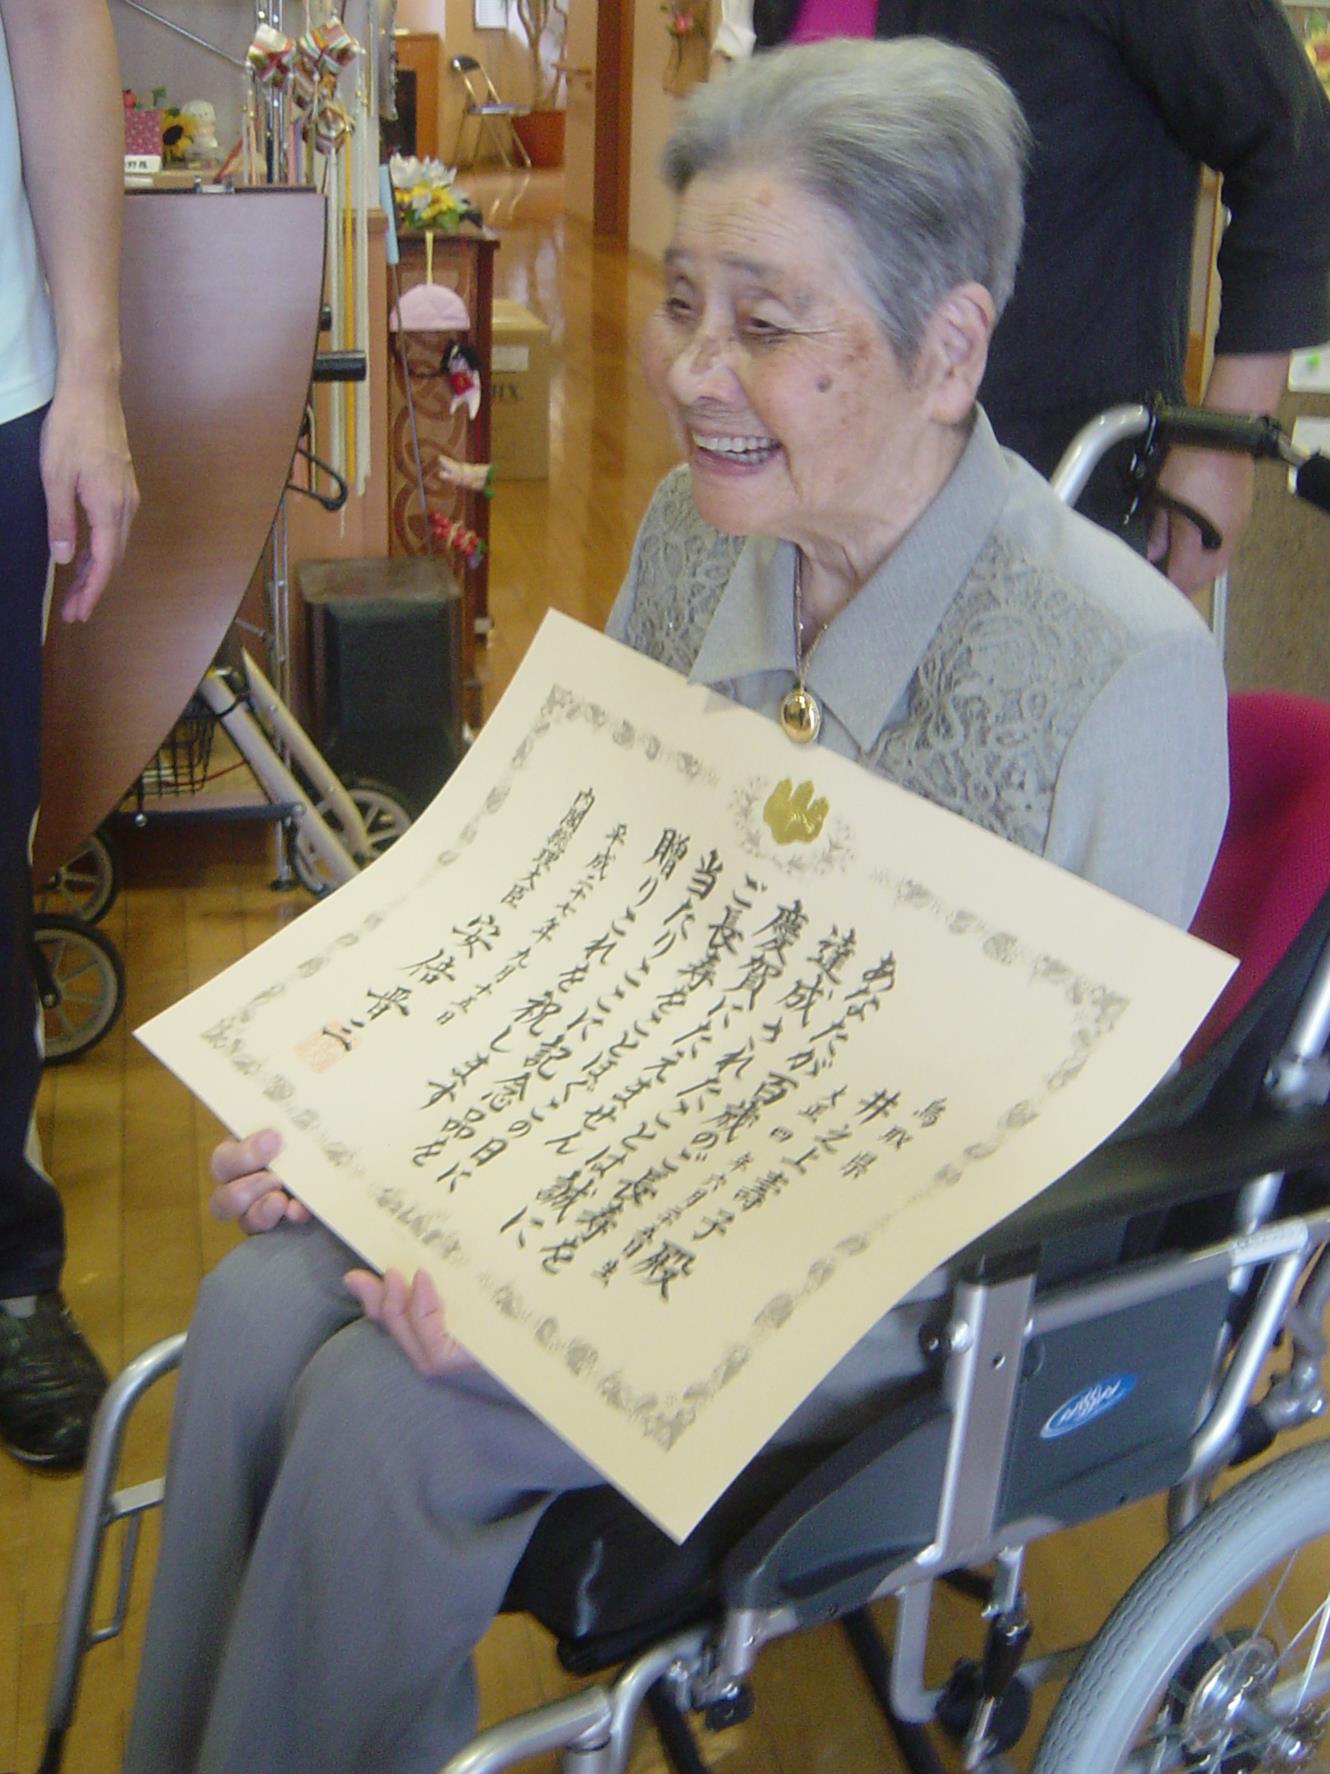 鳥取県
井之上壽子殿
大正四年六月
生
あなたが百歳のご長寿を
達成されたことは誠に
慶賀にたえません
ご長寿をことほぎこの日に
当たりここに記念品を
贈りこれを祝します
平成二十七年九月十五日
内閣総理大臣
安倍晋三
NISSIN